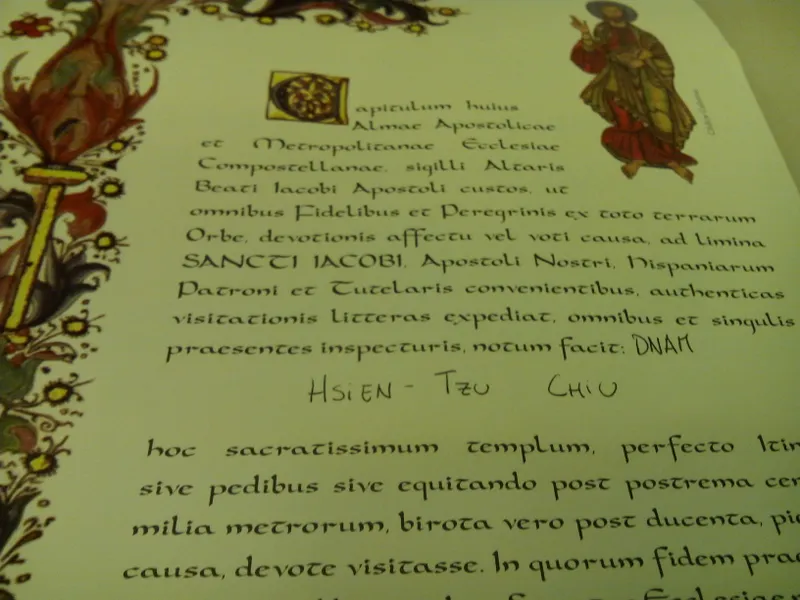 Capitulum huius
Almae Apostolicae
et Metropolitanae Ecclesiae
Compostellanae, sigilli Altaris
Beati Iacobi Apostoli custos, ut
omnibus Fidelibus et Peregrinis ex toto terrarum
Orbe, devotionis affectu vel voti causa, ad limina
SANCTI IACOBI, Apostoli Nostri, Hispaniarum
Patroni et Tutelaris convenientibus, authenticas
visitationis litteras expediat, omnibus et singulis
praesentes inspecturis, notum facit: DNAM
HSIEN-TZU CHIU
hoc sacratissimum templum, perfecto Itin
sive pedibus sive equitando post postrema cen
milia metrorum, birota vero post ducenta, pie
causa, devote visitasse. In quorum fidem prae